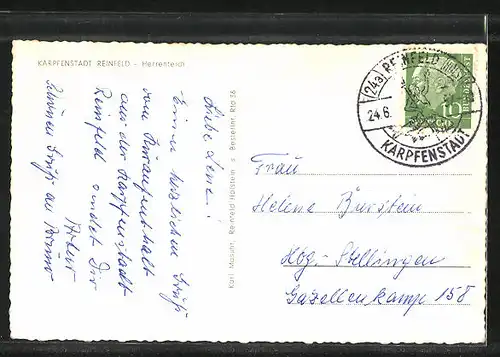 KARPFENSTADT REINFELD - Herrenteich
Liebe Lene!
Einen herzlichen Gruß
vom Kuraufenthalt
aus der Karpfenstadt
Reinfeld sendet Dir
Schönen Gruß an Bruno
Karl Mangin, Reinfeld Holstein Bestellnr. Rto 36
(24a) REINFELD (HOLST)
24.6.
KARPFENSTADT
10
DEUTSCHE BUNDESPOST
Frau
Helene Burstein
Hbg.-Stellingen
Gazellenkamp 158